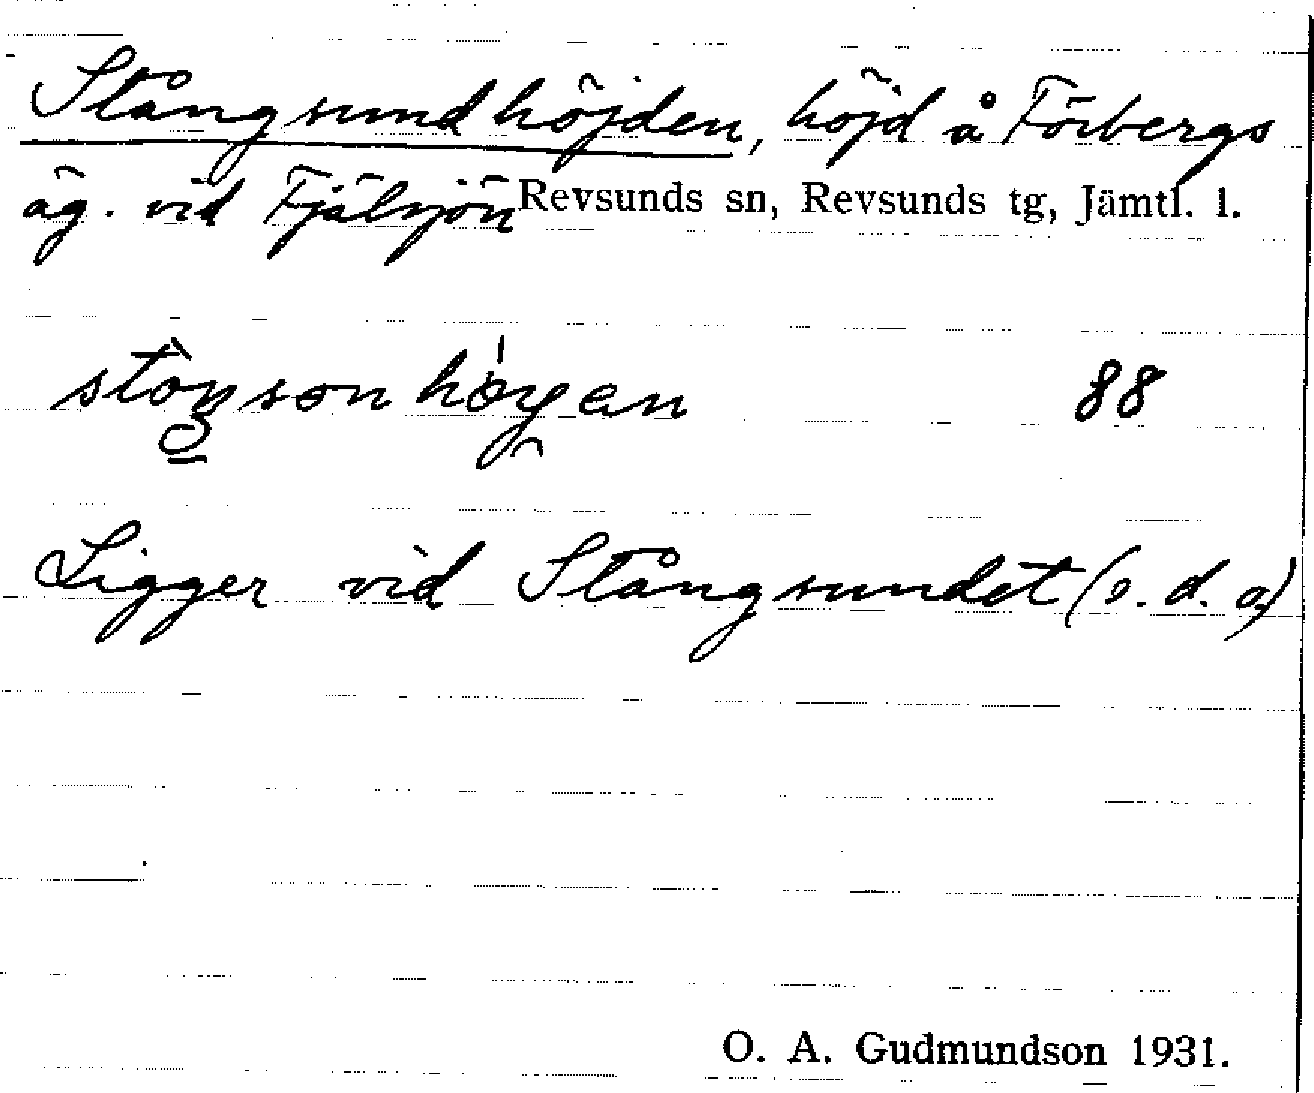 Stångsundhöjden, höjd å Förbergs
äg. vid Fjälsjön Revsunds sn, Revsunds tg, Jämtl. l.
88
Ligger vid Stångsundet (s. d. o)
O. A. Gudmundson 1931.